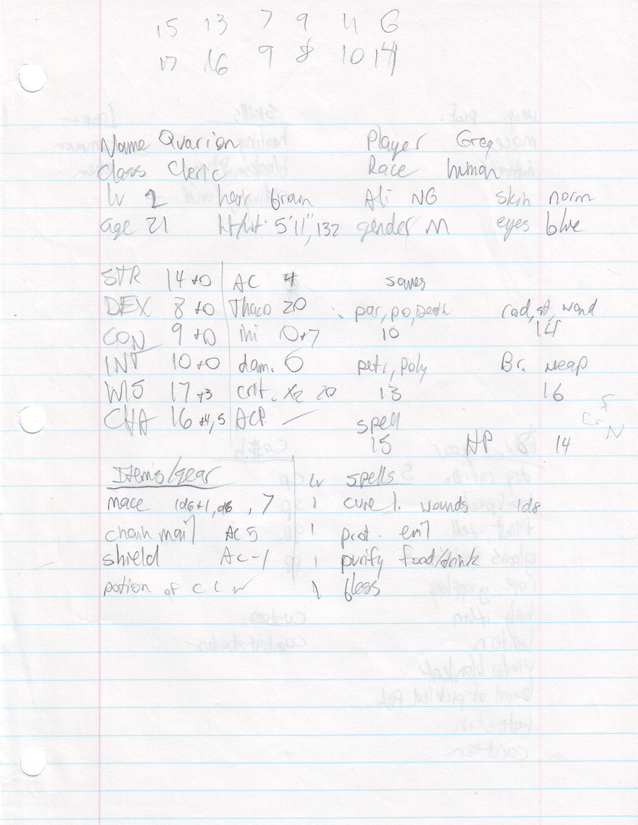 15 13 7 9 11 6
17 16 9 8 10 14
Name Quarion Player Greg
Class Cleric Race human
lv 2 hair brown Ali NG skin norm
age 21 ht/wt 5'11", 132 gender M eyes blue
STR 14 +0 AC 4 saves
DEX 8 +0 Thaco 20 par, po, Death rod, st, wand
CON 9 +0 ini 0+7 10 14
INT 10 +0 dam. 6 petr, poly Br. weap
WIS 17 +3 crit. x2 20 13 16
CHA 16 +4, 5 ACP – spell
15 HP 8 14
Items/gear lv spells
mace 1d6+1, 7 1 cure l. wounds 1d8
chain mail AC 5 1 prot. evil
shield AC -1 1 purify food/drink
potion of C L W 1 bless